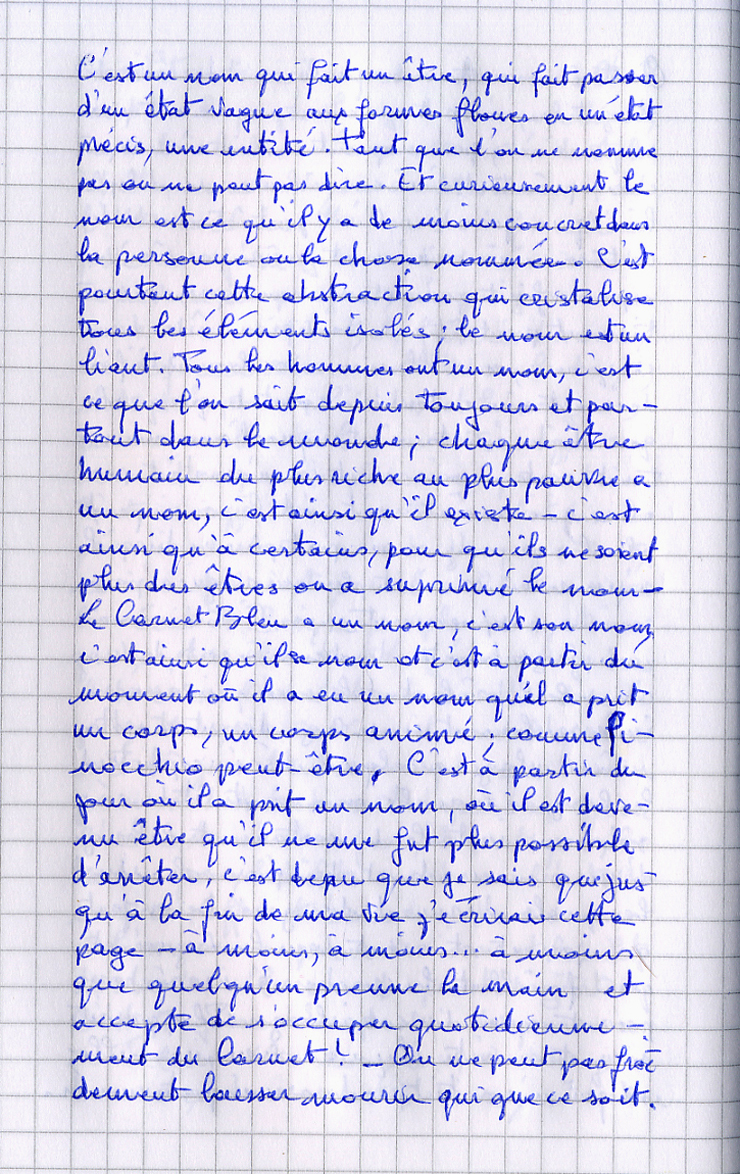 C'est un nom qui fait un être, qui fait passer
d'un état vague aux formes floues en un état
précis, une entité. Tant que l'on ne nomme
pas on ne peut pas dire. Et curieusement le
nom est ce qu'il y a de moins concret dans
la personne ou la chose nommée. C'est
pourtant cette abstraction qui cristalise
tous les éléments isolés ; le nom est un
liant. Tous les hommes ont un nom, c'est
ce que l'on sait depuis toujours et par-
tout dans le monde ; chaque être
humain du plus riche au plus pauvre a
un nom, c'est ainsi qu'il existe - c'est
ainsi qu'à certains, pour qu'ils ne soient
plus des êtres on a suprimé le nom -
Le Carnet Bleu a un nom, c'est son nom,
c'est ainsi qu'il se nom et c'est à partir du
moment où il a eu un nom qu'il a prit
un corps, un corps animé ; comme Pi-
nocchio peut-être, C'est à partir du
jour où il a prit un nom, où il est deve-
nu être qu'il ne me fut plus possible
d'arrêter, c'est depu que je sais que jus
qu'à la fin de ma vie j'écrirai cette
page - à moins, à moins... à moins
que quelqu'un prenne la main et
accepte de s'occuper quotidienne -
ment du Carnet ! - On ne peut pas froi
dement laisser mourir qui que ce soit.